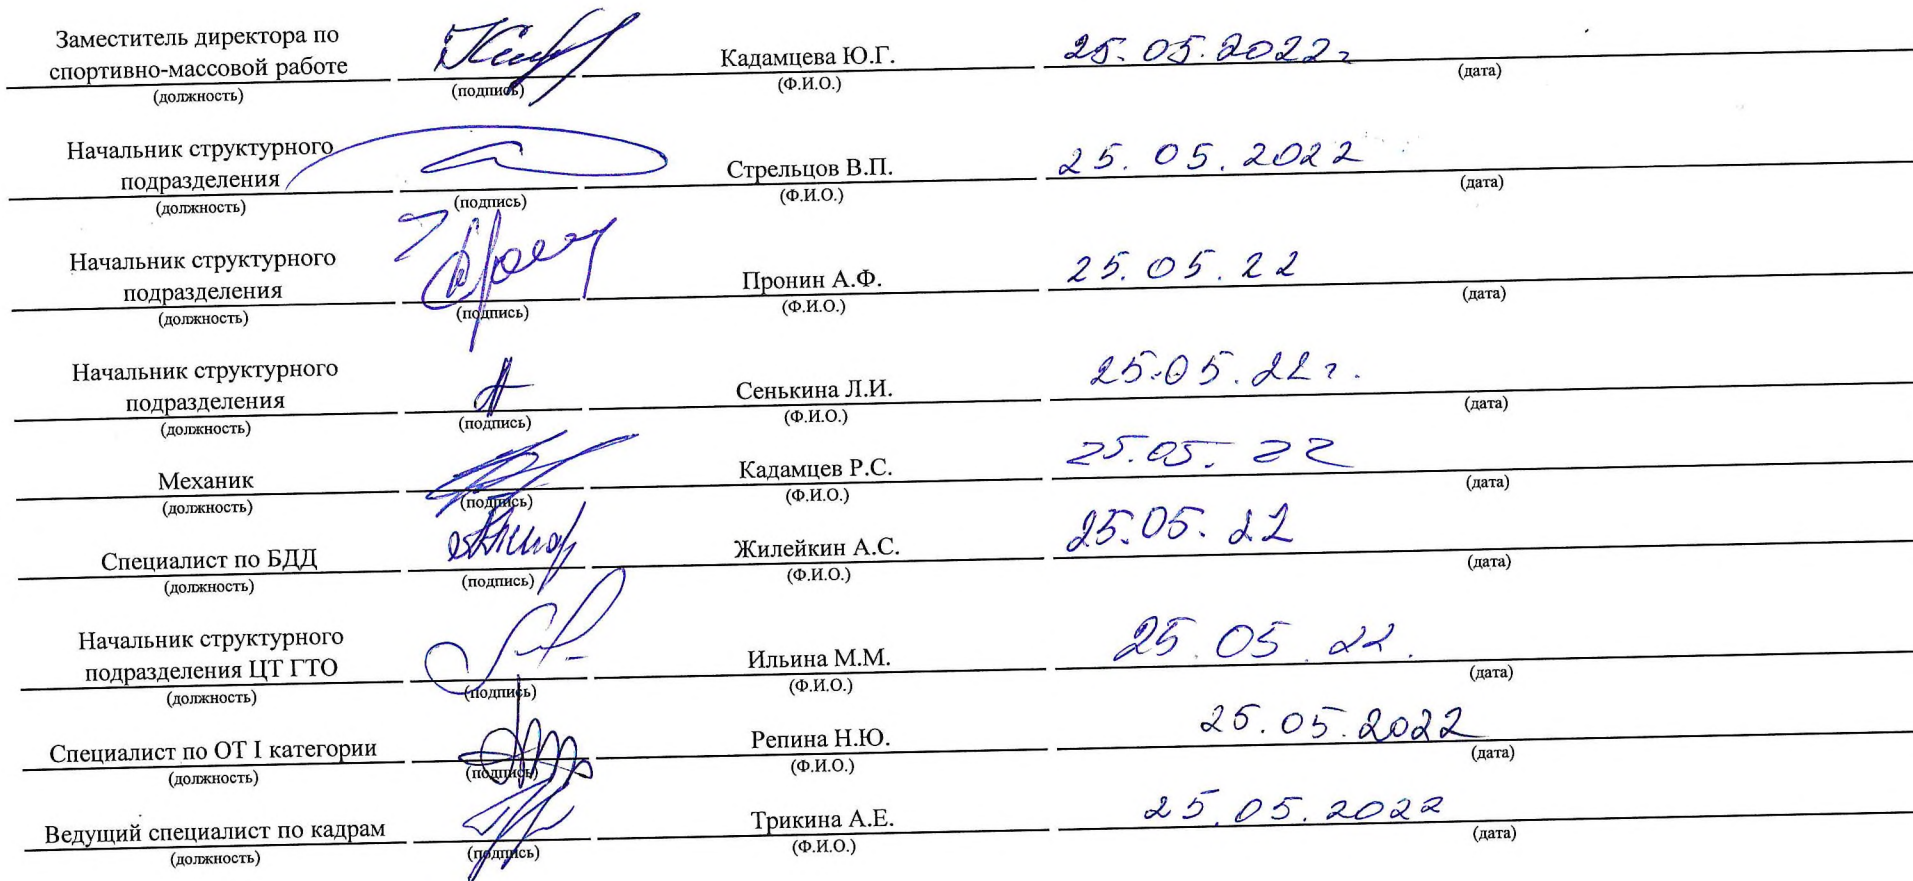 Заместитель директора по
спортивно-массовой работе Кадамцева Ю.Г. 25.05.2022г
(должность) (подпись) (Ф.И.О.) (дата)
Начальник структурного
подразделения Стрельцов В.П. 25.05.2022
(должность) (подпись) (Ф.И.О.) (дата)
Начальник структурного
подразделения Пронин А.Ф. 25.05.22
(должность) (подпись) (Ф.И.О.) (дата)
Начальник структурного
подразделения Сенькина Л.И. 25.05.22г.
(должность) (подпись) (Ф.И.О.) (дата)
Механик Кадамцев Р.С. 25.05.22
(должность) (подпись) (Ф.И.О.) (дата)
Специалист по БДД Жилейкин А.С. 25.05.22
(должность) (подпись) (Ф.И.О.) (дата)
Начальник структурного
подразделения ЦТ ГТО Ильина М.М. 25.05.22.
(должность) (подпись) (Ф.И.О.) (дата)
Специалист по ОТ I категории Репина Н.Ю. 25.05.2022
(должность) (подпись) (Ф.И.О.) (дата)
Ведущий специалист по кадрам Трикина А.Е. 25.05.2022
(должность) (подпись) (Ф.И.О.) (дата)